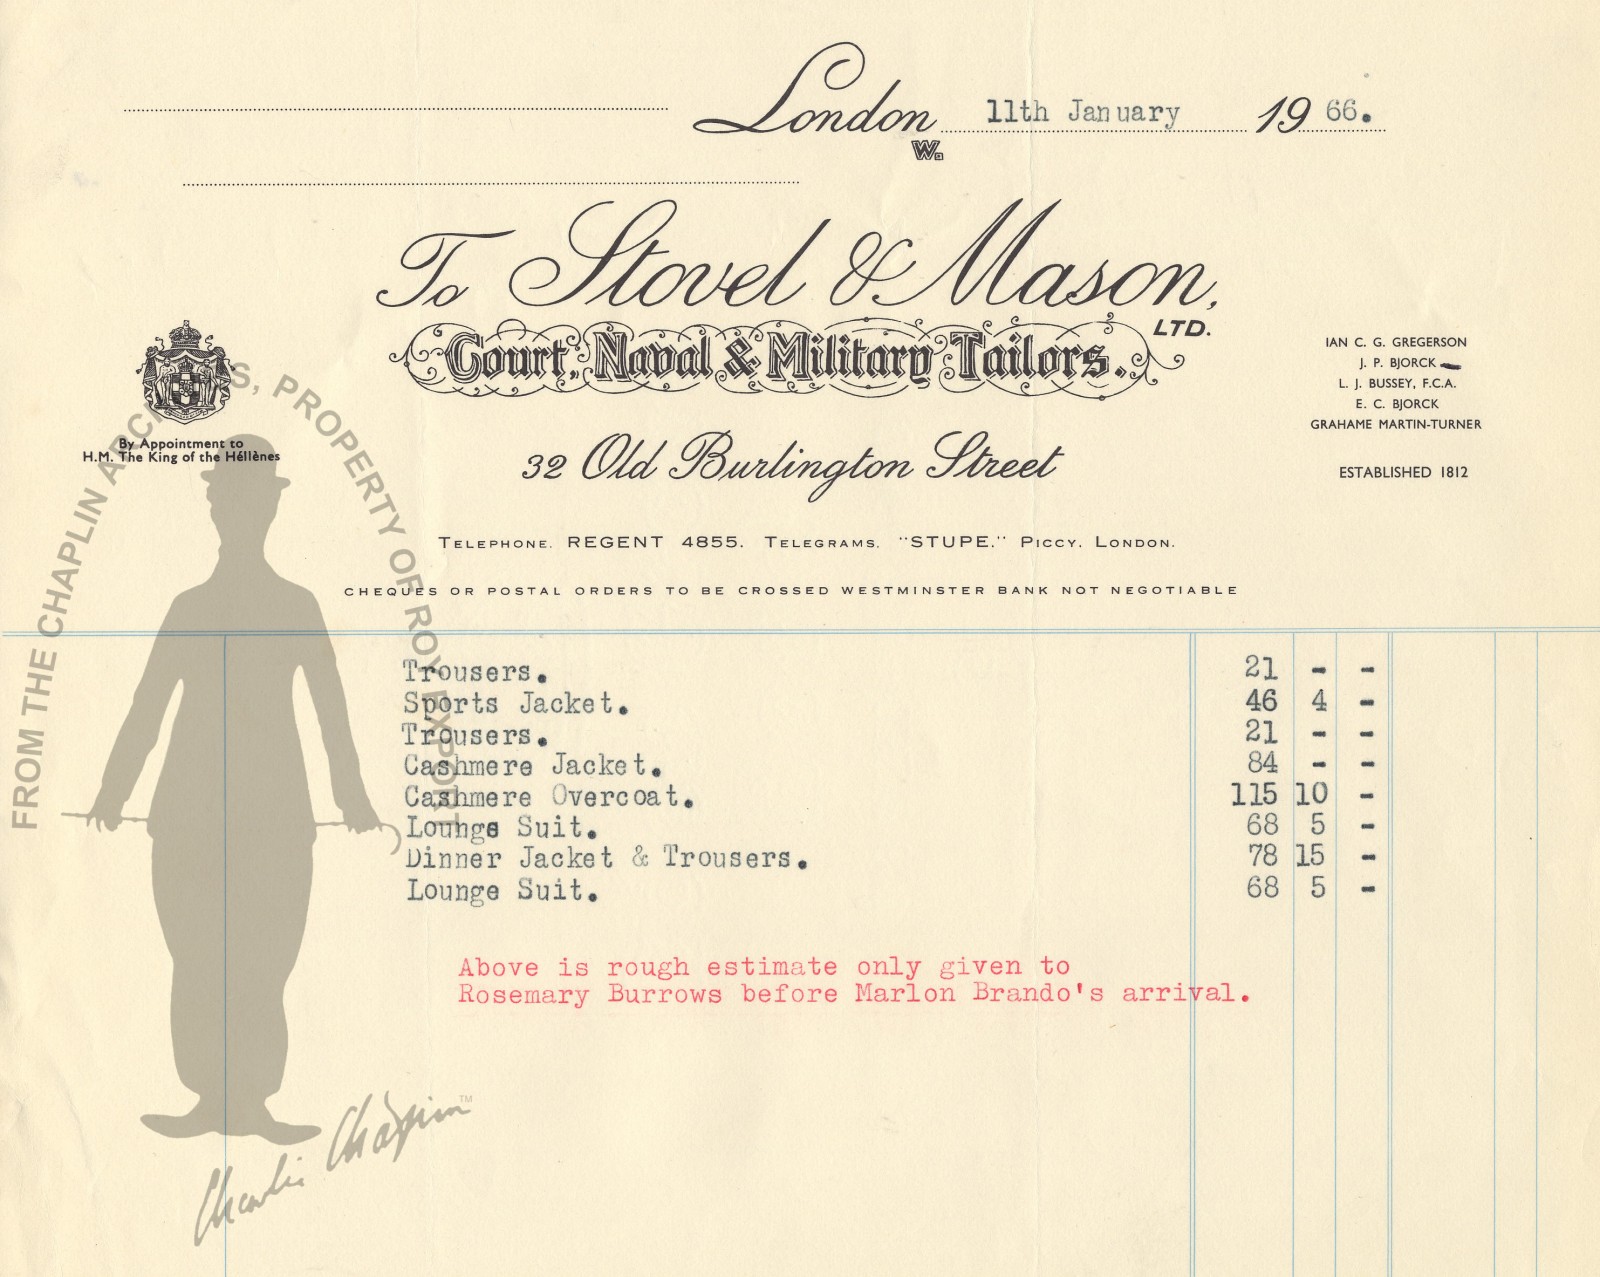 London W. 11th January 1966.
To Stovel & Mason,
LTD.
Court, Naval & Military Tailors.
By Appointment to
H.M. The King of the Héllènes
IAN C. G. GREGERSON
J. P. BJORCK
L. J. BUSSEY, F.C.A.
E. C. BJORCK
GRAHAME MARTIN-TURNER
ESTABLISHED 1812
32 Old Burlington Street
TELEPHONE. REGENT 4855. TELEGRAMS. "STUPE." PICCY, LONDON.
CHEQUES OR POSTAL ORDERS TO BE CROSSED WESTMINSTER BANK NOT NEGOTIABLE
Trousers. 21 - -
Sports Jacket. 46 4 -
Trousers. 21 - -
Cashmere Jacket. 84 - -
Cashmere Overcoat. 115 10 -
Lounge Suit. 68 5 -
Dinner Jacket & Trousers. 78 15 -
Lounge Suit. 68 5 -
Above is rough estimate only given to
Rosemary Burrows before Marlon Brando's arrival.
FROM THE CHAPLIN ARCHIVES, PROPERTY OF ROY EXPORT
Charlie Chaplin™